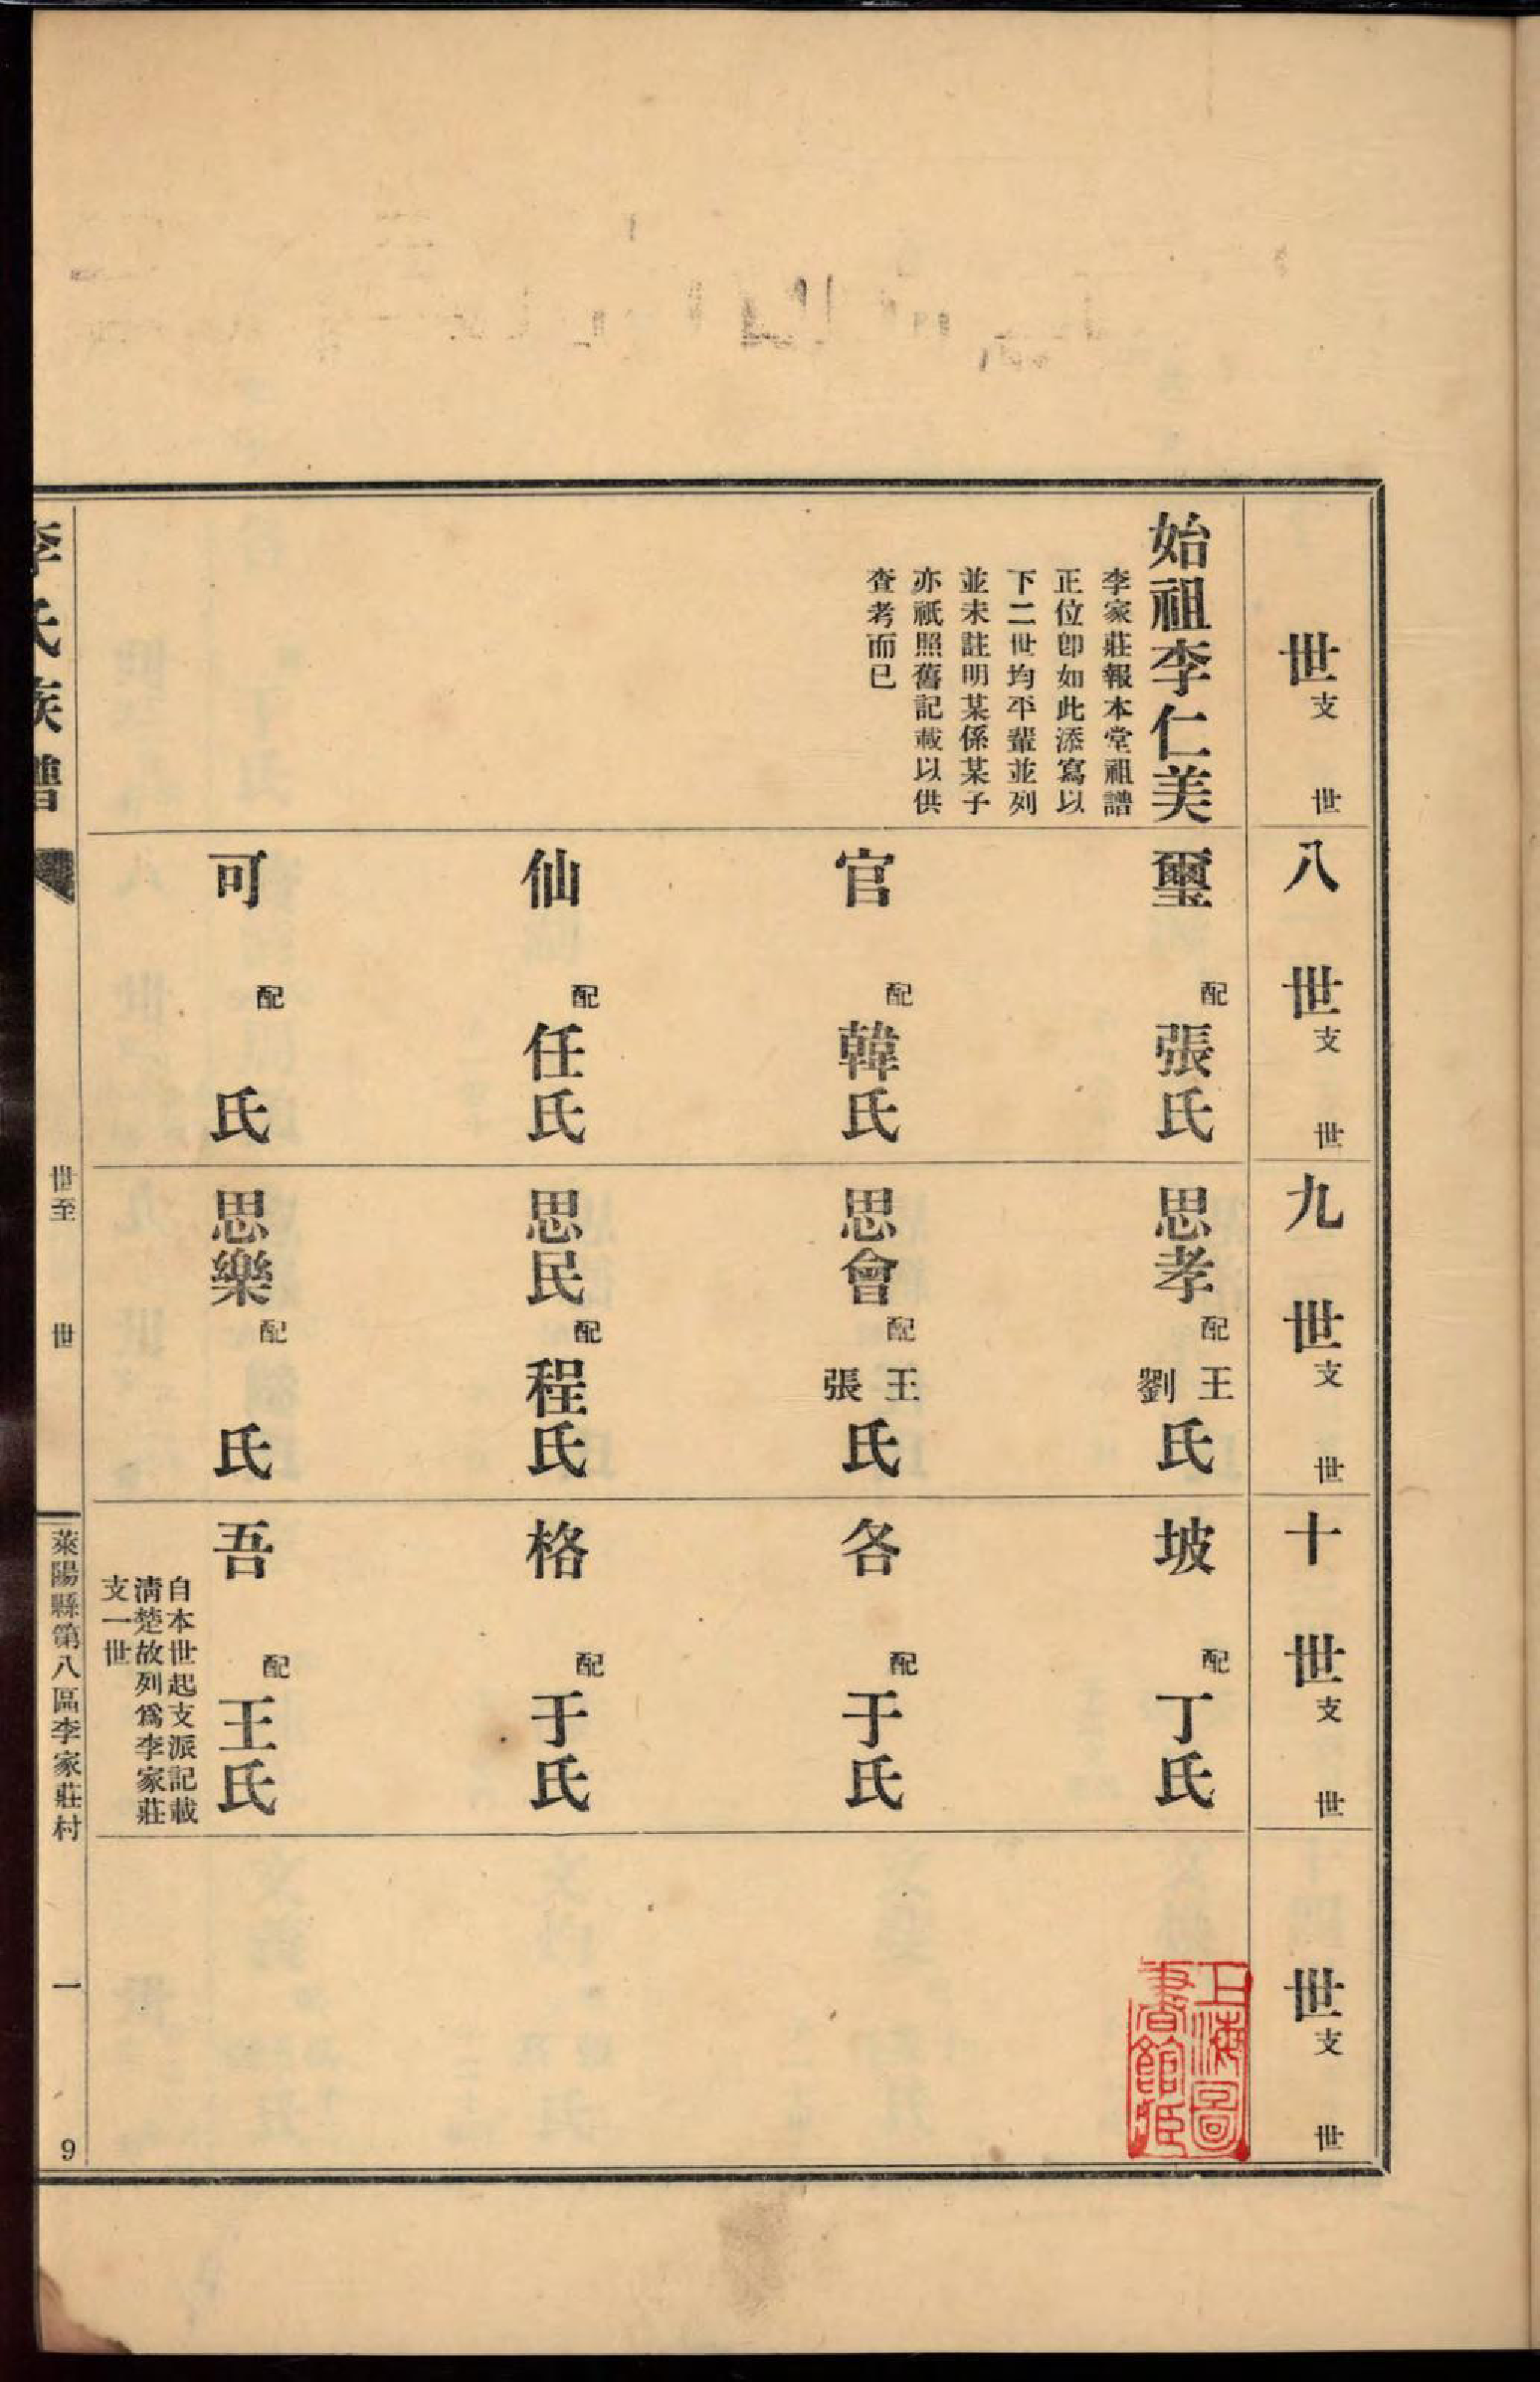 世支　世
八世支　世
九世支　世
十世支　世
世支　世
始祖李仁美
李家莊報本堂祖譜
正位卽如此添寫以
下二世均平輩並列
並未註明某係某子
亦祇照舊記載以供
查考而已
璽　配張氏
官　配韓氏
仙　配任氏
可　配　氏
思孝配王劉氏
思會配王張氏
思民配程氏
思樂配　氏
坡　配丁氏
各　配于氏
格　配于氏
吾　配王氏
自本世起支派記載
淸楚故列爲李家莊
支一世
上海圖
書館藏
李氏族譜
世至　世
萊陽縣第八區李家莊村
一
9